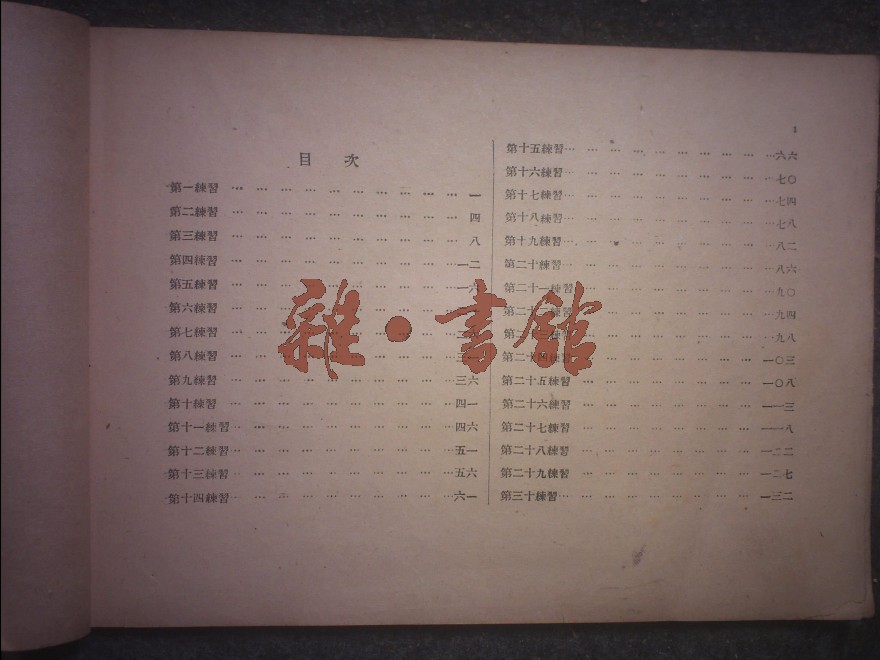 1
目　次
第一練習 … … … … … … … … … … 一
第二練習 … … … … … … … … … … 四
第三練習 … … … … … … … … … … 八
第四練習 … … … … … … … … … …一二
第五練習 … … … … … … … … … …一六
第六練習
第七練習
第八練習
第九練習 … … … … … … … … … …三六
第十練習 … … … … … … … … … …四一
第十一練習… … … … … … … … … …四六
第十二練習… … … … … … … … … …五一
第十三練習… … … … … … … … … …五六
第十四練習… … … … … … … … … …六一
第十五練習… … … … … … … … … …六六
第十六練習… … … … … … … … … …七〇
第十七練習… … … … … … … … … …七四
第十八練習… … … … … … … … … …七八
第十九練習… … … … … … … … … …八二
第二十練習 … … … … … … … … …八六
第二十一練習 … … … … … … … … …九〇
第二十二練習 … … … … … … … … …九四
第二十三練習 … … … … … … … … …九八
第二十四練習 … … … … … … … … 一〇三
第二十五練習 … … … … … … … … 一〇八
第二十六練習 … … … … … … … … 一一三
第二十七練習 … … … … … … … … 一一八
第二十八練習 … … … … … … … … 一二二
第二十九練習 … … … … … … … … 一二七
第三十練習… … … … … … … … … 一三二
雜·書館